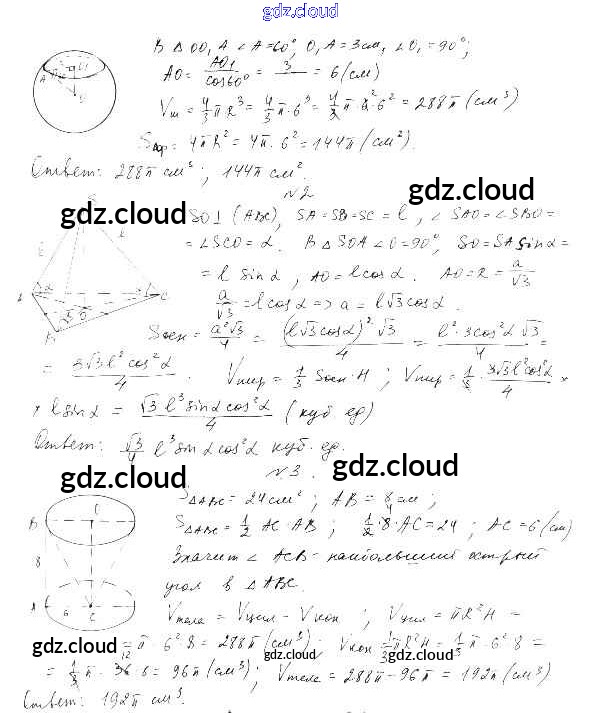 gdz.cloud
В Δ OO₁A ∠A=60°, O₁A=3см, ∠O₁=90°;
AO = AO₁/cos60° = 3/ = 6 (см)
Vш = 4/3 πR³ = 4/3 π·6³ = 4/3 π·6²·6² = 288π (см³)
= 4πR² = 4π·6² = 144π (см²).
Ответ: 288π см³; 144π см².
N2
gdz.cloud
gdz.cloud
SO⊥(ABC), SA=SB=SC=l, ∠SAO=∠SBO=
=∠SCO=α. В ΔSOA ∠O=90°, SO=SA sinα=
= l sinα, AO=l cosα. AO=R= a/√3
a/√3 = l cosα => a = l√3 cosα.
Sосн = a²√3/4 = (l√3cosα)²√3/4 = l²·3cos²α√3/4 =
= 3√3l²cos²α/4. Vпир = 1/3 Sосн·H; Vпир = 1/3 · 3√3l²cos²α/4 ×
× l sinα = √3 l³ sinα cos²α/4 (куб ед)
Ответ: √3/4 l³ sinα cos²α куб. ед.
gdz.cloud
N3.
gdz.cloud
SΔABC = 24см²; AB = 8см;
SΔABC = 1/2 AC·AB; 1/2·8·AC=24; AC=6(см)
Значит ∠ACB - наибольший острый
угол в ΔABC.
Vтела = Vцил - Vкон; Vцил = πR²H =
= π·6²·8 = 288π(см³); Vкон = 1/3πR²H = 1/3π·6²·8 =
gdz.cloud
gdz.cloud
gdz.cloud
= 1/3π·36·8 = 96π(см³); Vтела = 288π-96π = 192π(см³)
Ответ: 192π см³.